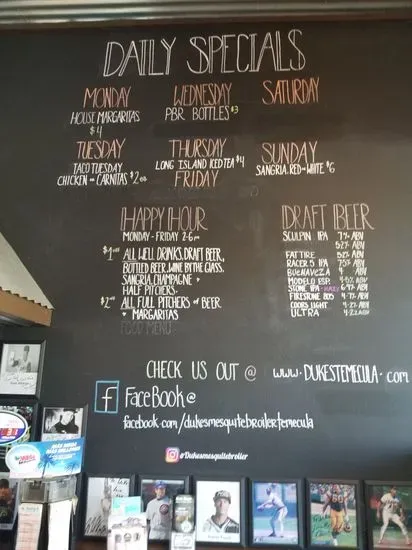 DAILY SPECIALS
MONDAY
HOUSE MARGARITAS
$4
WEDNESDAY
PBR BOTTLES $3
SATURDAY
TUESDAY
TACO TUESDAY
CHICKEN OR CARNITAS $2.00
THURSDAY
LONG ISLAND ICED TEA $4
FRIDAY
SUNDAY
SANGRIA RED OR WHITE $6
HAPPY HOUR
MONDAY - FRIDAY 2-6
ALL WELL DRINKS, DRAFT BEER,
BOTTLED BEER, WINE BY THE GLASS.
SANGRIA, CHAMPAGNE +
HALF PITCHERS.
ALL FULL PITCHERS OF BEER
+ MARGARITAS
FOOD MENU
DRAFT BEER
SCULPIN IPA 7% ABV
5.2% ABV
FAT TIRE 5.2% ABV
RACER 5 IPA 7.5% ABV
BUENAVEZA 4 ABV
MODELO ESP. ABV
STONE IPA - HAZY 6.7% ABV
FIRESTONE 805 4.7% ABV
COORS LIGHT 4.2% ABV
ULTRA 4.2% ABV
CHECK US OUT @ WWW.DUKESTEMECULA.COM
f FaceBook@
facebook.com/dukesmesquitebroilertemecula
@Dukesmesquitebroiler